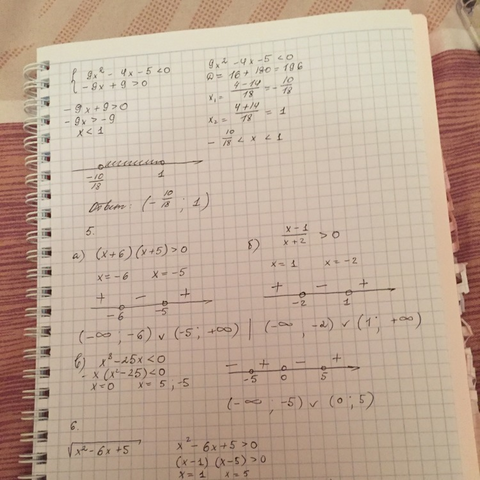 { 9x² - 4x - 5 < 0
-9x + 9 > 0
-9x + 9 > 0
-9x > -9
x < 1
9x² - 4x - 5 < 0
D = 16 + 180 = 196
x₁ = (4-14)/18 = -10/18
x₂ = (4+14)/18 = 1
-10/18 < x < 1
-10/18 1
Ответ: (-10/18 ; 1)
5.
а) (x+6)(x+5) > 0
x = -6 x = -5
+ - +
-6 -5
(-∞, -6) ∨ (-5; +∞)
б) (x-1)/(x+2) > 0
x = 1 x = -2
+ - +
-2 1
(-∞, -2) ∨ (1; +∞)
в) x³ - 25x < 0
x(x² - 25) < 0
x = 0 x = 5, -5
- + - +
-5 0 5
(-∞; -5) ∨ (0; 5)
6.
√(x² - 6x + 5)
x² - 6x + 5 > 0
(x-1)(x-5) > 0
x = 1 x = 5